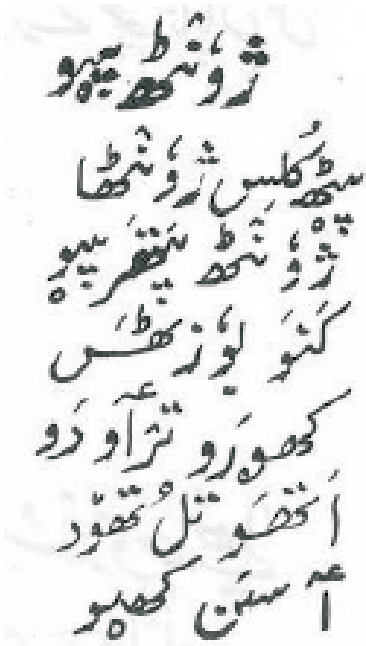 ژوٗنٹھ پیو
پیٹھ کُلِس ژوٗنٹھا
ژوٗنٹھ پَتھَر پیو
کَنَو بوٗز ٹھَس
کھورَو ترٛآو دَو
اَتھَو تُل تھوٚد
آسَن کھیو